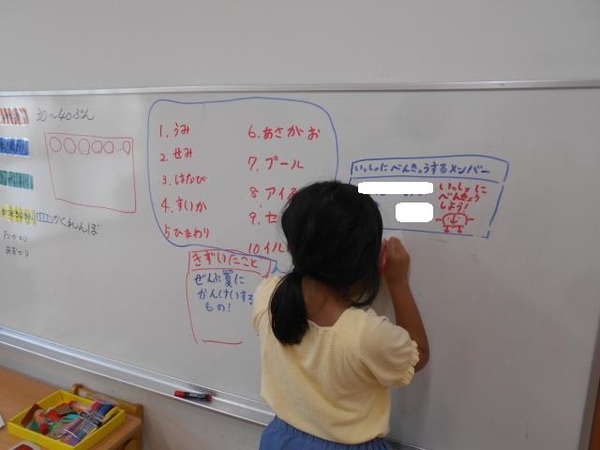 30〜40ぷん
かくれんぼ
1. うみ
2. せみ
3. はなび
4. すいか
5 ひまわり
6. あさがお
7. プール
8 アイス
9. セ
10 イル
きづいたこと
ぜんぶ夏に
かんけいする
もの!
いっしょに べんきょうするメンバー
いっしょに
べんきょう
しよう!